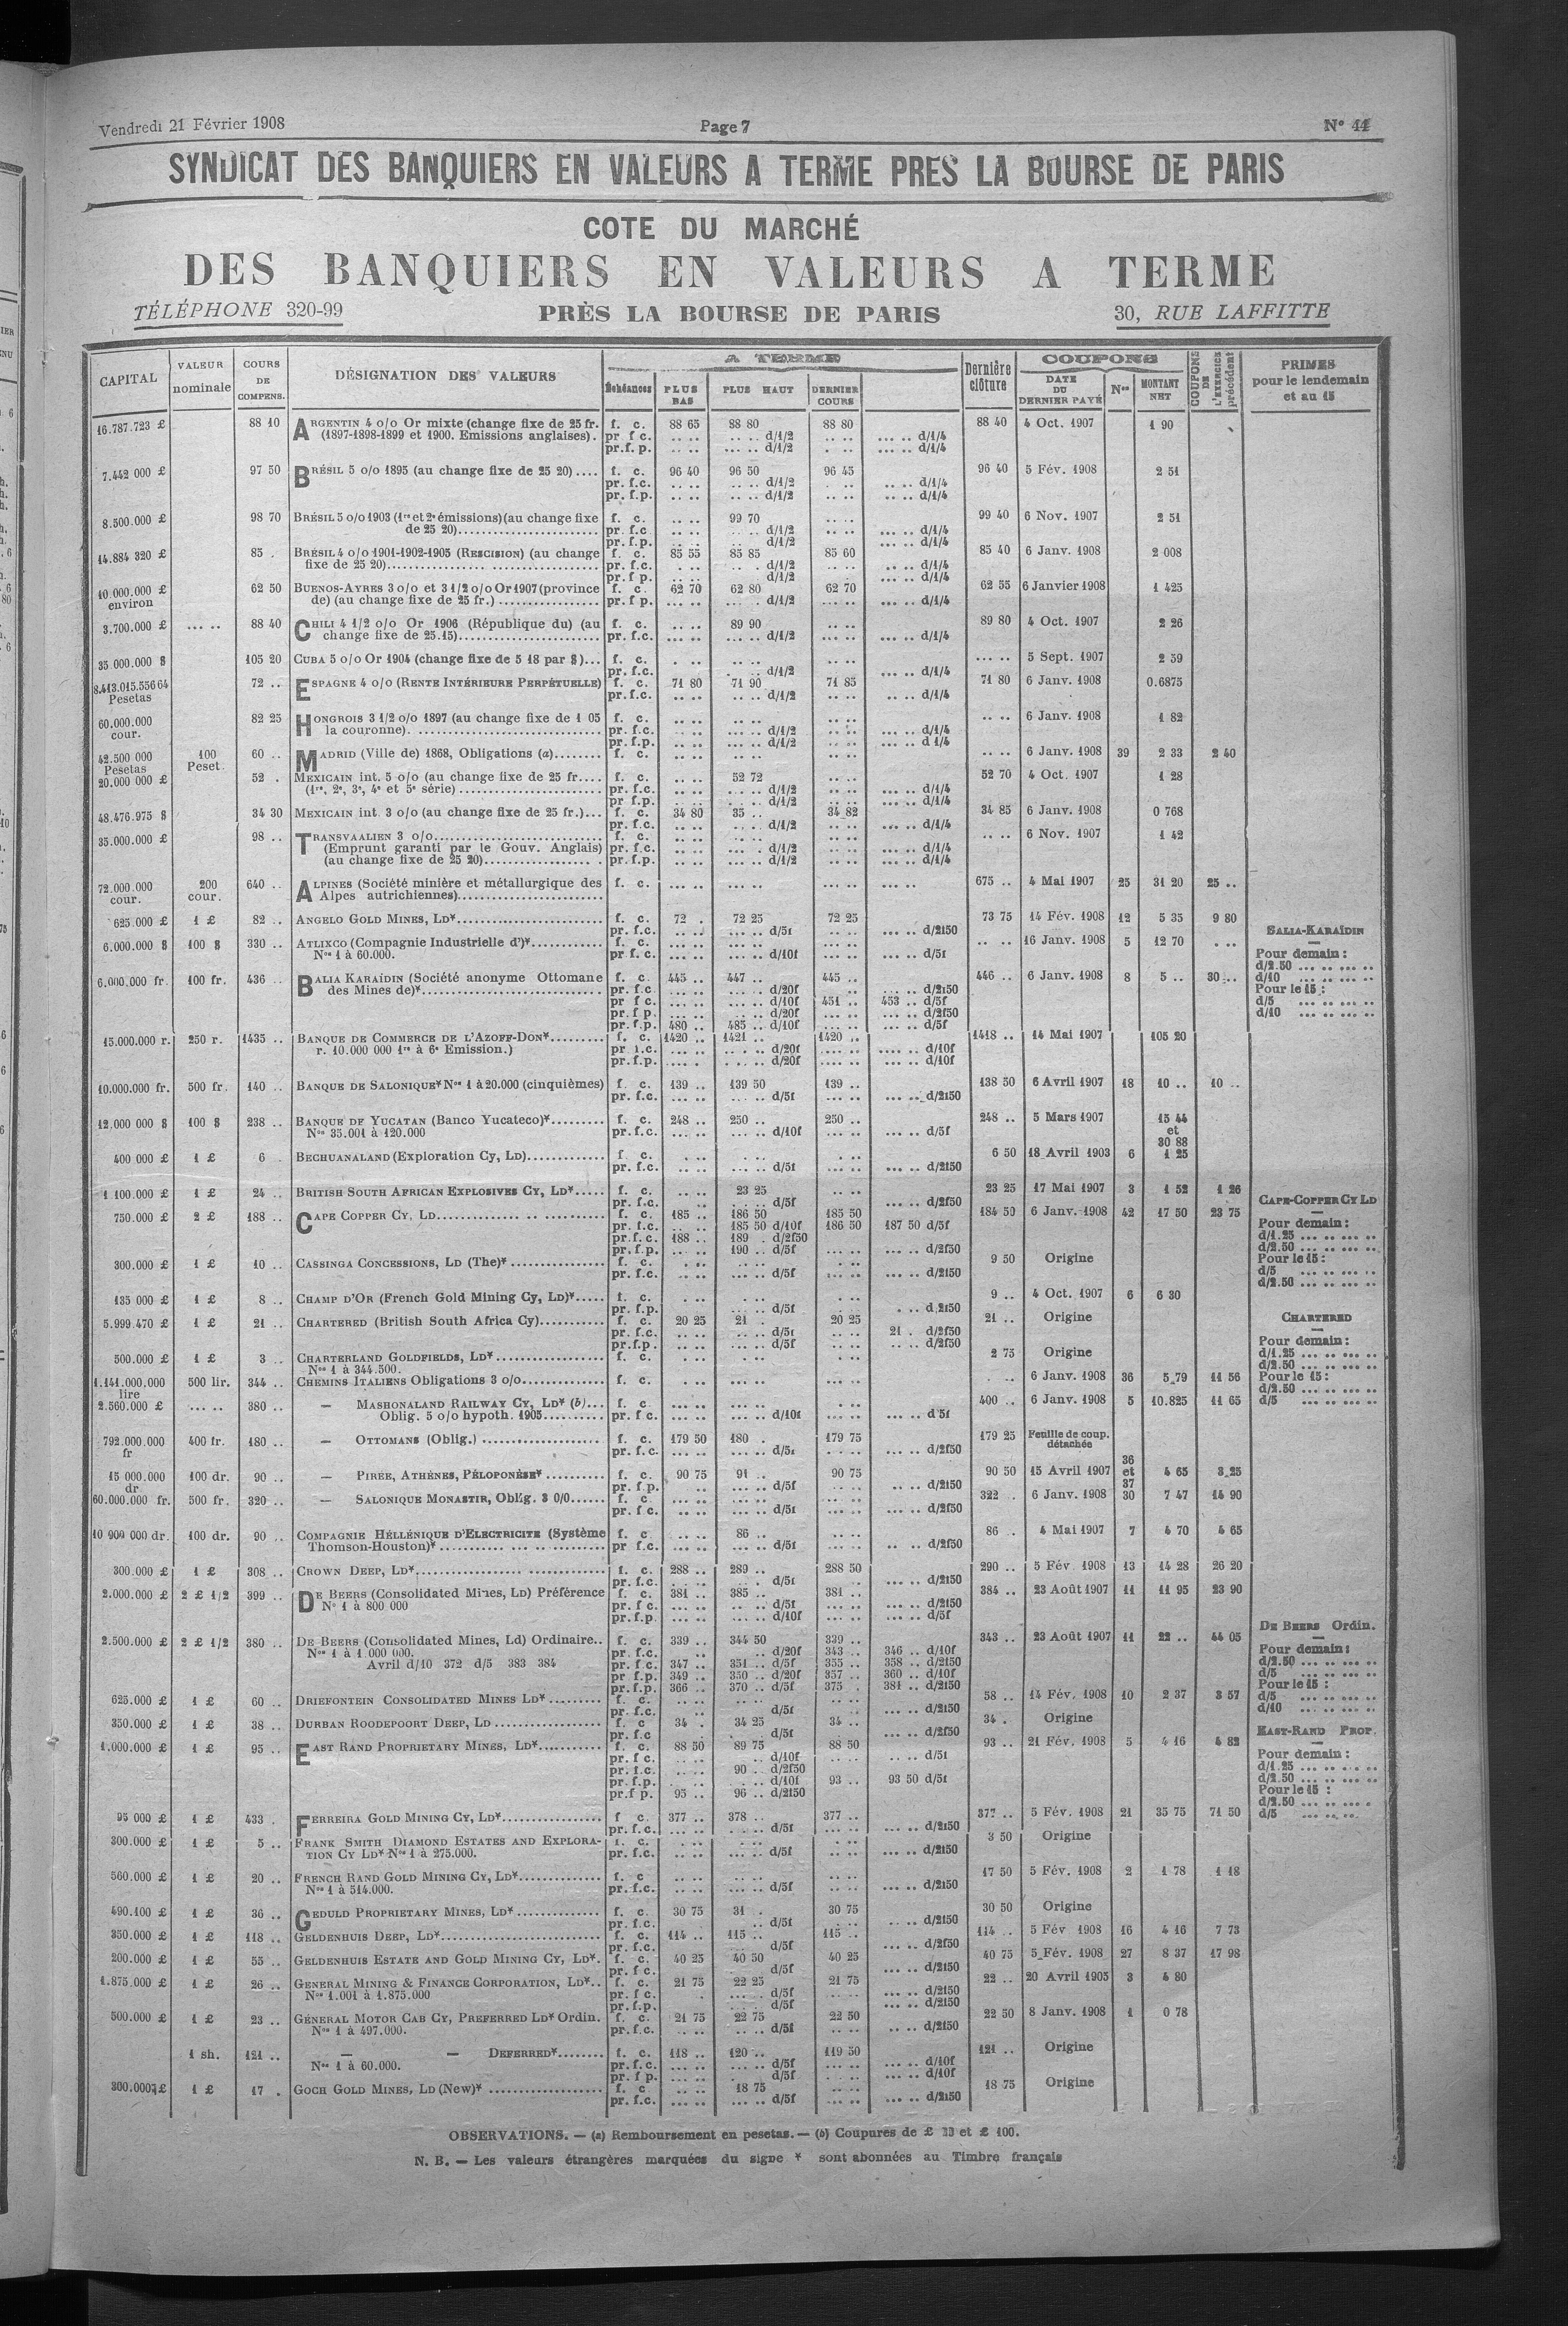 Vendredi 21 Février 1908 Page 7 N° 44
SYNDICAT DES BANQUIERS EN VALEURS A TERME PRES LA BOURSE DE PARIS
COTE DU MARCHÉ
DES BANQUIERS EN VALEURS A TERME
TÉLÉPHONE 320-99 PRÈS LA BOURSE DE PARIS 30, RUE LAFFITTE
CAPITAL VALEUR nominale COURS DE COMPENS. DÉSIGNATION DES VALEURS A TERME Échéances PLUS BAS PLUS HAUT DERNIER COURS Dernière clôture COUPONS DATE DU DERNIER PAYÉ Nos MONTANT NET COUPONS DE L'EXERCICE précédent PRIMES pour le lendemain et au 15
16.787.723 £ 88 10 ARGENTIN 4 o/o Or mixte (change fixe de 25 fr. f. c. 88 65 88 80 88 80 88 40 4 Oct. 1907 1 90
(1897-1898-1899 et 1900. Emissions anglaises). pr f c. .. .. .. .. d/1/2 .. .. ... .. d/1/4
pr.f. p. .. .. ... .. d/1/2 . .. ... .. d/1/4
7.442 000 £ 97 50 BRÉSIL 5 o/o 1895 (au change fixe de 25 20).... f. c. 96 40 96 50 96 45 96 40 5 Fév. 1908 2 51
pr. f.c. .. .. .. .. d/1/2 . .. .. .. d/1/4
pr. f.p. .. .. .. .. d/1/2 .. .. .. .. d/1/4
8.500.000 £ 98 70 BRÉSIL 5 o/o 1903 (1re et 2e émissions) (au change fixe f. c. .. .. 99 70 .. .. 99 40 6 Nov. 1907 2 51
de 25 20)........................ pr. f.c .. .. .. .. d/1/2 .. .. ... .. d/1/4
pr. f.p. .. .. d/1/2 .. .. ... .. d/1/4
14.884 320 £ 85 . BRÉSIL 4 o/o 1901-1902-1905 (RESCISION) (au change f. c. 85 55 85 85 85 60 85 40 6 Janv. 1908 2 008
fixe de 25 20)................................ pr. f.c. . .. .. .. d/1/2 .. .. .. .. d/1/4
pr. f p. .. .. d/1/2 . .. ... .. d/1/4
10.000.000 £ environ 62 50 BUENOS-AYRES 3 o/o et 3 1/2 o/o Or 1907 (province f. c. 62 70 62 80 62 70 62 55 6 Janvier 1908 1 425
de) (au change fixe de 25 fr.) ................. pr. f p. ... .. .. . d/1/2 ... .. ... .. d/1/4
3.700.000 £ ... .. 88 40 CHILI 4 1/2 o/o Or 1906 (République du) (au f. c. .. .. 89 90 .. .. 89 80 4 Oct. 1907 2 26
change fixe de 25.15)........................ pr. f.c. ... .. ... .. d/1/2 ... .. ... .. d/1/4
35 000.000 $ 105 20 CUBA 5 o/o Or 1904 (change fixe de 5 18 par $)... f. c. . .. .. .. .. .. ... .. 5 Sept. 1907 2 59
pr. f.c. . .. .. d/1/2 ... .. d/1/4
8.413.015.556 64 Pesetas 72 .. ESPAGNE 4 o/o (RENTE INTÉRIEURE PERPÉTUELLE) f. c. 71 80 71 90 71 85 71 80 6 Janv. 1908 0.6875
pr. f.c. .. .. .. .. d/1/2 .. .. ... .. d/1/4
60.000.000 cour. 82 25 HONGROIS 3 1/2 o/o 1897 (au change fixe de 1 05 f. c. .. .. .. .. .. .. .. .. 6 Janv. 1908 1 82
la couronne). .............................. pr. f.c. .. .. ... .. d/1/2 .. .. ... .. d/1/4
pr. f.p. .. .. ... .. d/1/2 .. .. ... .. d 1/4
42.500 000 Pesetas 100 Peset. 60 .. MADRID (Ville de) 1868, Obligations (a)........ f. c. .. .. .. .. .. .. .. .. 6 Janv. 1908 39 2 33 2 40
20.000 000 £ 52 . MEXICAIN int. 5 o/o (au change fixe de 25 fr.... f. c. .. .. 52 72 .. .. 52 70 4 Oct. 1907 1 28
(1re, 2e, 3e, 4e et 5e série) ........................ pr. f.c. .. .. .. .. d/1/2 .. .. ... .. d/1/4
pr f.p. .. .. .. .. d/1/2 .. .. ... .. d/1/4
48.476.975 $ 34 30 MEXICAIN int. 3 o/o (au change fixe de 25 fr.)... f. c. 34 80 35 .. 34 82 34 85 6 Janv. 1908 0 768
pr. f.c. .. .. .. .. d/1/2 .. .. ... .. d/1/4
35.000.000 £ 98 .. TRANSVAALIEN 3 o/o............................ f. c. .. .. .. .. .. .. .. .. 6 Nov. 1907 1 42
(Emprunt garanti par le Gouv. Anglais) pr. f.c. .. .. ... . d/1/2 .. .. ... .. d/1/4
(au change fixe de 25 20)................. pr. f.p. .. .. ... .. d/1/2 .. .. ... .. d/1/4
72.000.000 cour. 200 cour. 640 .. ALPINES (Société minière et métallurgique des f. c. ... .. ... .. ... .. ... .. 675 .. 4 Mai 1907 25 31 20 25 ..
Alpes autrichiennes)........................
625.000 £ 1 £ 82 .. ANGELO GOLD MINES, LD*........................ f. c. 72 . 72 25 72 25 73 75 14 Fév. 1908 12 5 35 9 80
pr. f.c. .. .. ... .. d/5f ... .. d/2f50
6.000.000 $ 100 $ 330 .. ATLIXCO (Compagnie Industrielle d')*............ f. c. ... .. ... .. ... .. .. .. 16 Janv. 1908 5 12 70 . ..
Nos 1 à 60.000. pr. f. c. ... .. ... .. d/10f ... .. ... .. d/5f
6.000.000 fr. 100 fr. 436 .. BALIA KARAÏDIN (Société anonyme Ottomane f. c. 445 .. 447 .. 445 .. 446 .. 6 Janv. 1908 8 5 .. 30 ..
des Mines de)*.............................. pr. f.c. ... .. ... .. d/20f .. .. ... .. d/2f50
pr f c. ... .. ... .. d/10f 451 .. 453 .. d/5f
pr. f p. ... .. .. .. d/20f ... .. ... .. d/2f50
pr. f.p. 480 .. 485 .. d/10f ... .. ... .. d/5f
BALIA-KARAÏDIN
Pour demain:
d/2.50 ... .. ... ..
d/10 ... .. ... ..
Pour le 15:
d/5 ... .. ... ..
d/10 ... .. ... ..
15.000.000 r. 250 r. 1435 .. BANQUE DE COMMERCE DE L'AZOFF-DON*......... f. c. 1420 .. 1421 .. 1420 .. 1418 .. 14 Mai 1907 105 20
r. 10.000 000 1re à 6e Emission.) pr f.c. .... .. .. .. d/20f .... .. .... .. d/10f
pr. f.p. .... .. .. .. d/20f .... .. .... .. d/10f
10.000.000 fr. 500 fr. 140 .. BANQUE DE SALONIQUE* Nos 1 à 20.000 (cinquièmes) f. c. 139 .. 139 50 139 .. 138 50 6 Avril 1907 18 10 .. 10 ..
pr. f.c. ... .. ... .. d/5f ... .. ... .. d/2f50
12.000 000 $ 100 $ 238 .. BANQUE DE YUCATAN (Banco Yucateco)*......... f. c. 248 .. 250 .. 250 .. 248 .. 5 Mars 1907 15 44
Nos 35.001 à 120.000 pr. f.c. ... .. ... .. d/10f ... .. ... .. d/5f et
30 88
400 000 £ 1 £ 6 . BECHUANALAND (Exploration Cy, LD)............. f c. . .. . .. . .. 6 50 18 Avril 1903 6 1 25
pr. f.c. ... .. ... .. d/5f ... .. ... .. d/2f50
1 100.000 £ 1 £ 24 .. BRITISH SOUTH AFRICAN EXPLOSIVES CY, LD*..... f. c. .. .. 23 25 .. .. 23 25 17 Mai 1907 3 1 52 1 26
pr. f.c. .. .. .. .. d/5f ... .. d/2f50
750.000 £ 2 £ 188 .. CAPE COPPER CY, LD........................ f. c. 185 .. 186 50 185 50 184 50 6 Janv. 1908 42 17 50 23 75
pr. f.c. .. .. 185 50 d/10f 186 50 187 50 d/5f
pr. f. c. 188 .. 189 . d/2f50
pr. f.p. ... .. 190 .. d/5f ... .. ... .. d/2f50
CAPE-COPPER CY LD
Pour demain:
d/1.25 ... .. ... ..
d/2.50 ... .. ... ..
Pour le 15:
d/5 ... .. ... ..
d/2.50 ... .. ... ..
300.000 £ 1 £ 10 .. CASSINGA CONCESSIONS, LD (The)* ................ f. c. . .. . .. . .. 9 50 Origine
pr. f.c. ... .. ... .. d/5f ... .. ... .. d/2f50
135 000 £ 1 £ 8 .. CHAMP D'OR (French Gold Mining Cy, LD)*..... f. c. . .. . .. . .. 9 .. 4 Oct. 1907 6 6 30
pr. f.p. ... .. d/5f . .. d.2f50
5.999.470 £ 1 £ 21 .. CHARTERED (British South Africa Cy)........... f. c. 20 25 21 . 20 25 21 .. Origine
pr. f.c. .. .. .. .. d/5f .. .. 21 . d/2f50
pr.f.p. .. .. .. .. d/5f .. .. d/2f50
CHARTERED
Pour demain:
d/1.25 ... .. ... ..
d/2.50 ... .. ... ..
Pour le 15:
d/2.50 ... .. ... ..
d/5 ... .. ... ..
500.000 £ 1 £ 3 .. CHARTERLAND GOLDFIELDS, LD*.................. f. c. . .. . .. . .. 2 75 Origine
Nos 1 à 344.500.
1.141.000.000 lire 500 lir. 344 .. CHEMINS ITALIENS Obligations 3 o/o.............. f. c. . .. ... .. ... .. . .. 6 Janv. 1908 36 5.79 11 56
2.560.000 £ ... .. 380 .. — MASHONALAND RAILWAY CY, LD* (b)... f. c ... .. ... .. ... .. 400 .. 6 Janv. 1908 5 10.825 11 65
Oblig. 5 o/o hypoth. 1905.......... pr. f c. ... .. ... .. d/10f ... .. ... .. d 5f
792.000.000 fr 400 fr. 180 .. — OTTOMANS (Oblig.) .................... f. c. 179 50 180 . 179 75 179 25 Feuille de coup. détachée
pr. f.c. ... .. ... .. d/5f . .. ... .. d/2f50
15 000.000 dr 100 dr. 90 .. — PIRÉE, ATHÈNES, PÉLOPONÈSE* .......... f. c. 90 75 91 .. 90 75 90 50 15 Avril 1907 36 et 37 4 65 3.25
pr. f p. .. .. ... .. d/5f .. .. .. .. d/2f50
60.000.000 fr. 500 fr. 320 .. — SALONIQUE MONASTIR, Oblig. 3 0/0...... f. c ... .. ... .. ... .. 322 . 6 Janv. 1908 30 7 47 14 90
pr. f c. ... .. ... .. d/5f ... .. ... .. d/2f50
10 900 000 dr. 100 dr. 90 .. COMPAGNIE HÉLLÉNIQUE D'ELECTRICITE (Système f. c .. .. 86 .. .. .. 86 .. 4 Mai 1907 7 4 70 4 65
Thomson-Houston)* ........................ pr f.c. ... .. ... .. d/5f ... .. .. .. d/2f50
300.000 £ 1 £ 308 .. CROWN DEEP, LD*............................ f. c. 288 .. 289 .. 288 50 290 .. 5 Fév 1908 13 14 28 26 20
pr. f.c. .. .. .. .. d/5f ... .. d/2f50
2.000.000 £ 2 £ 1/2 399 .. DE BEERS (Consolidated Mines, LD) Préférence f. c. 381 .. 385 .. 381 .. 384 .. 23 Août 1907 11 11 95 23 90
N° 1 à 800 000 pr. f c. ... .. ... .. d/5f ... .. ... .. d/2f50
pr. f.p. ... .. ... .. d/10f ... .. ... .. d/5f
2.500.000 £ 2 £ 1/2 380 .. DE BEERS (Consolidated Mines, Ld) Ordinaire.. f. c. 339 .. 344 50 339 .. 343 .. 23 Août 1907 11 22 .. 44 05
Nos 1 à 1.000 000. pr. f.c. .. .. .. d/20f 343 .. 346 .. d/10f
Avril d/10 372 d/5 383 384 pr. f c. 347 .. 351 .. d/5f 355 .. 358 .. d/2f50
pr f.p. 349 .. 350 .. d/20f 357 .. 360 .. d/10f
pr. f.p. 366 .. 370 .. d/5f 375 . 381 .. d/2f50
DE BEERS Ordin.
Pour demain:
d/2.50 ... .. ... ..
d/5 ... .. ... ..
Pour le 15:
d/5 ... .. ... ..
d/10 ... .. ... ..
625.000 £ 1 £ 60 .. DRIEFONTEIN CONSOLIDATED MINES LD*......... f. c. .. .. .. .. .. .. 58 .. 14 Fév. 1908 10 2 37 3 57
pr. f.c. d/5f ... .. d/2f50
350.000 £ 1 £ 38 .. DURBAN ROODEPOORT DEEP, LD .................. f. c 34 . 34 25 34 .. 34 . Origine
pr. f.c .. .. d/5f ... .. d/2f50
1.000.000 £ 1 £ 95 .. EAST RAND PROPRIETARY MINES, LD*........... f. c. 88 50 89 75 88 50 93 .. 21 Fév. 1908 5 4 16 4 82
pr. f c. .. .. .. .. d/10f .. .. .. .. d/5f
pr. f.c. .. .. 90 .. d/2f50
pr. f.p. . .. . .. d/10f 93 .. 93 50 d/5f
pr.f p. 95 .. 96 .. d/2f50
EAST-RAND PROP.
Pour demain:
d/1.25 ... .. ... ..
d/2.50 ... .. ... ..
Pour le 15 :
d/2.50 ... .. ... .
d/5 ... .. ..
95 000 £ 1 £ 433 . FERREIRA GOLD MINING CY, LD*................. f c. 377 .. 378 .. 377 .. 377 .. 5 Fév. 1908 21 35 75 71 50
pr. f.c. ... .. . .. d/5f ... .. ... .. d/2f50
300.000 £ 1 £ 5 .. FRANK SMITH DIAMOND ESTATES AND EXPLORA- f. c. . .. .. .. . .. 3 50 Origine
TION CY LD* Nos 1 à 275.000. pr. f.c. .. .. ... .. d/5f .. .. ... .. d/2f50
560.000 £ 1 £ 20 .. FRENCH RAND GOLD MINING CY, LD*.............. f. c .. .. .. .. .. .. 17 50 5 Fév. 1908 2 1 78 1 18
Nos 1 à 514.000. pr. f.c. .. .. ... .. d/5f .. .. ... .. d/2f50
490.100 £ 1 £ 36 .. GEDULD PROPRIETARY MINES, LD*.............. f. c. 30 75 31 . 30 75 30 50 Origine
pr. f.c. .. .. d/5f . .. ... .. d/2f50
350.000 £ 1 £ 118 .. GELDENHUIS DEEP, LD*........................... f. c. 114 .. 115 .. 115 .. 114 .. 5 Fév 1908 16 4 16 7 73
pr. f.c. .. .. d/5f ... .. d/2f50
200.000 £ 1 £ 55 .. GELDENHUIS ESTATE AND GOLD MINING CY, LD*. f. c. 40 25 40 50 40 25 40 75 5 Fév. 1908 27 8 37 17 98
pr. f c. .. .. d/5f ... .. d/2f50
1.875.000 £ 1 £ 26 .. GENERAL MINING & FINANCE CORPORATION, LD*.. f. c. 21 75 22 25 21 75 22 .. 20 Avril 1905 3 4 80
Nos 1.001 à 1.875.000 pr. f c . ... . d/5f ... .. d/2f50
pr. f.p. .. .. d/5f ... .. d/2f50
500.000 £ 1 £ 23 .. GENERAL MOTOR CAB CY, PREFERRED LD* Ordin. f. c. 21 75 22 75 22 50 22 50 8 Janv. 1908 1 0 78
Nos 1 à 497.000. pr. f.c. .. .. .. .. d/5f .. .. .. .. d/2f50
1 sh. 121 .. — — DEFERRED*........ f. c. 118 .. 120 .. 119 50 121 .. Origine
Nos 1 à 60.000. pr. f. c. ... .. ... .. d/5f ... .. ... .. d/10f
pr. f p. ... .. ... .. d/5f . .. ... .. d/10f
300.000 £ 1 £ 17 . GOCH GOLD MINES, LD (New)* ................... f. c .. .. 18 75 .. .. 18 75 Origine
pr. f.c. ... .. ... .. d/5f ... .. ... .. d/2f50
OBSERVATIONS. — (a) Remboursement en pesetas. — (b) Coupures de £ 20 et £ 100.
N. B. — Les valeurs étrangères marquées du signe * sont abonnées au Timbre français